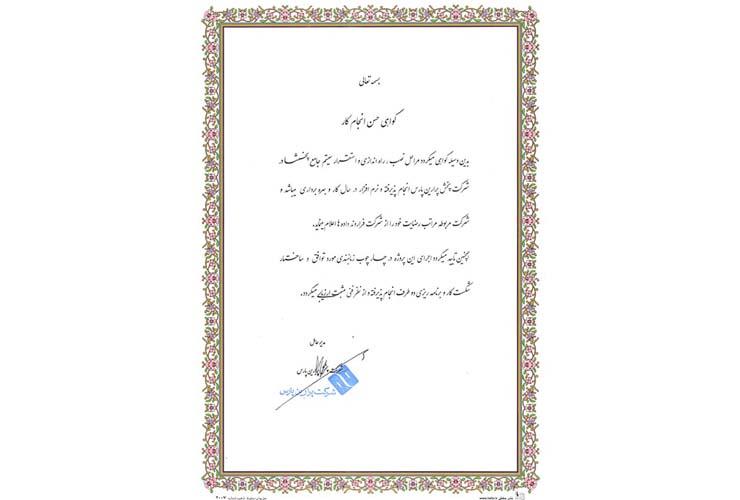 بسمه تعالی
گواهی حسن انجام کار
بدین وسیله گواهی میگردد مراحل نصب ، راه اندازی و استقرار سیستم جامع پخش در
شرکت پخش برارین پارس انجام پذیرفته و نرم افزار در حال کار و بهره برداری میباشد و
شرکت مربوطه مراتب رضایت خود را از شرکت فراروند داده ها اعلام مینماید.
همچنین تایید میگردد اجرای این پروژه در چهار چوب زمانبندی مورد توافق و ساختار
شکست کار و برنامه ریزی دو طرف انجام پذیرفته و از نظر فنی مثبت ارزیابی میگردد.
مدیر عامل
شرکت پخش برارین پارس
شرکت برارین پارس